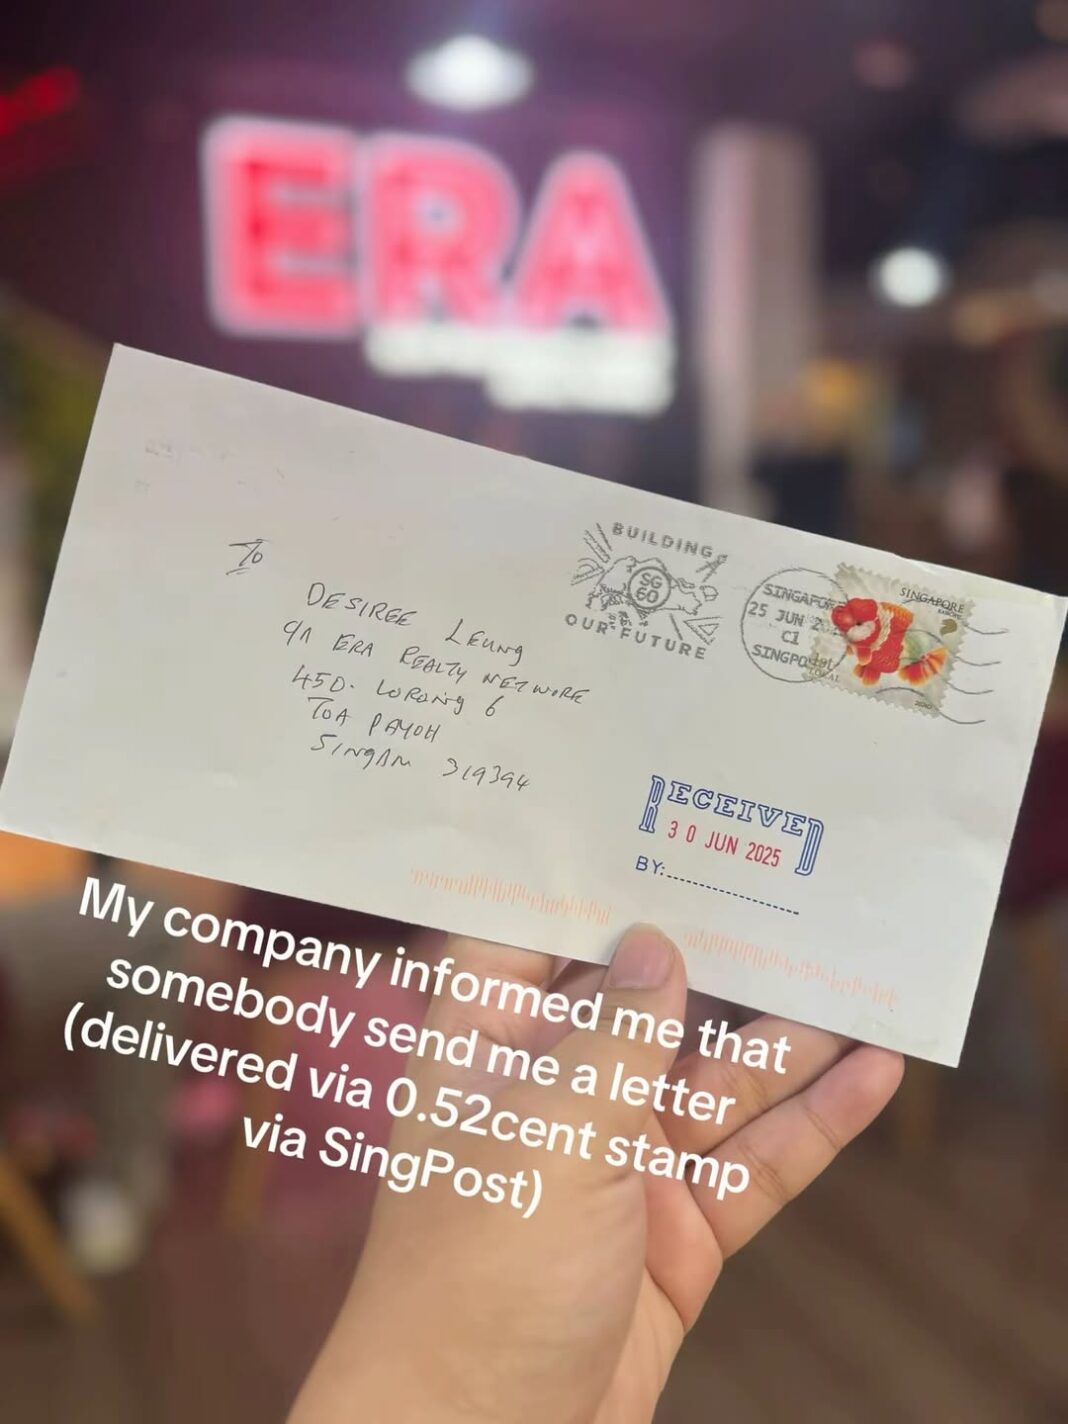 ERA
To
DESIREE LEUNG
C/O ERA REALTY NETWORK
450. LORONG 6
TOA PAYOH
SINGAPORE 319394
BUILDING
SG
60
OUR FUTURE
SINGAPORE
25 JUN
C1
SINGPOST
SINGAPORE
RECEIVED
30 JUN 2025
BY:
My company informed me that
somebody send me a letter
(delivered via 0.52cent stamp
via SingPost)